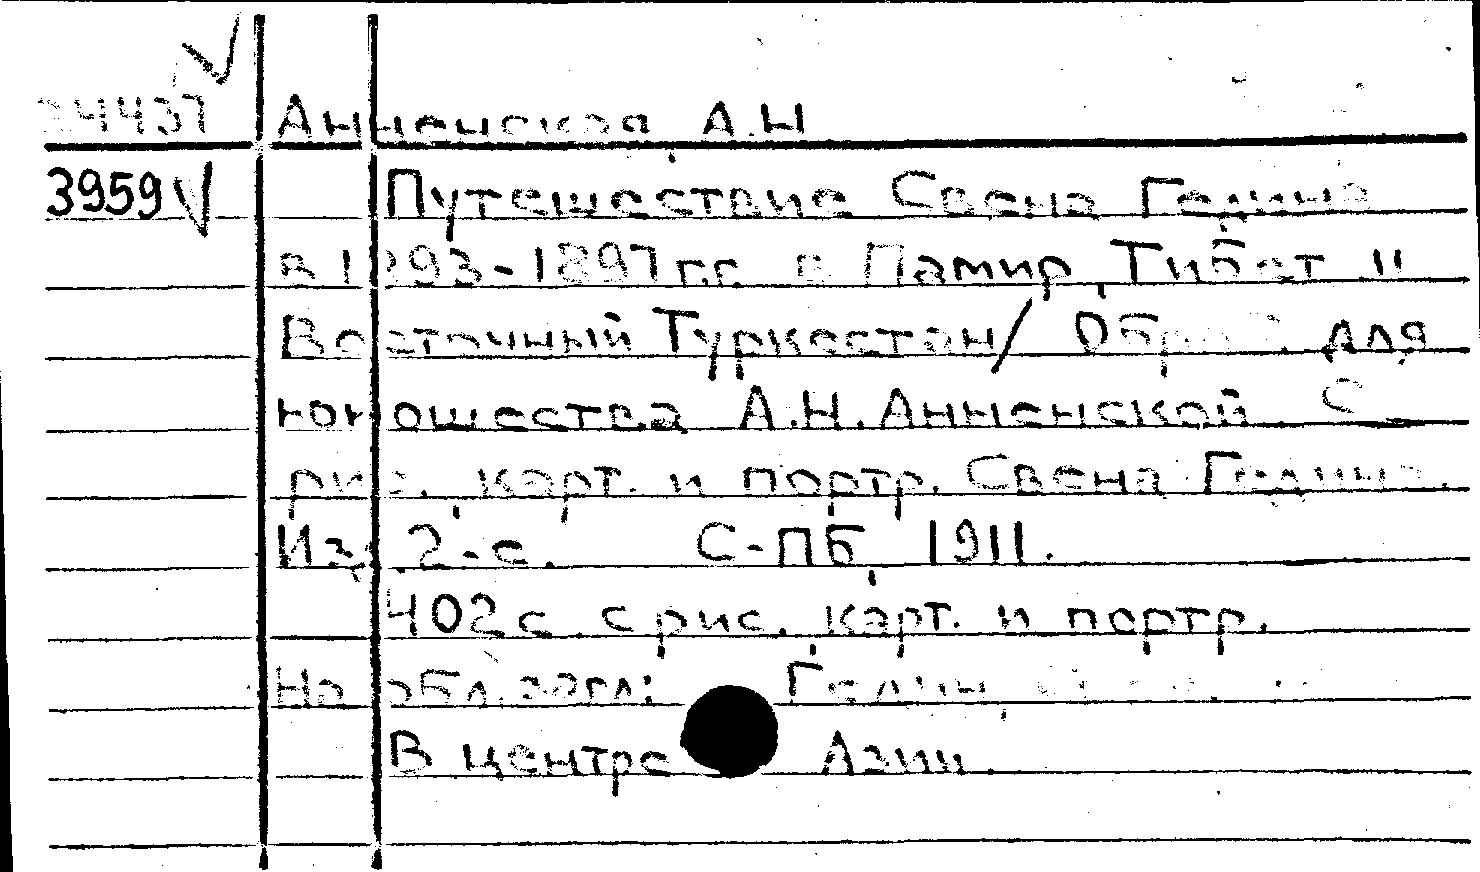 24437 Анненская А.Н
3959 Путешествие Свена Гедина
в 1893-1897 г.г. в Памир, Тибет и
Восточный Туркестан/ Обраб. для
юношества А.Н.Анненской С
рис., карт. и портр. Свена Гедина.
Изд. 2-е. С-ПБ, 1911.
402с. с рис., карт. и портр.
На обл.загл: Гедин,
В центре Азии.